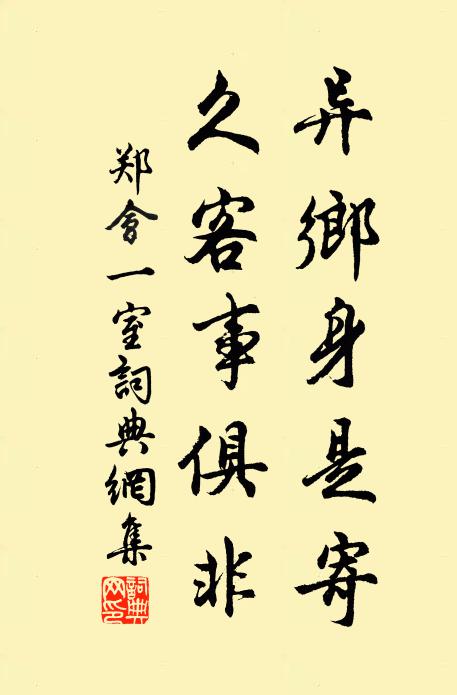 异鄉身是寄
久客事俱非
郑會一室詞典網集
詞典网印